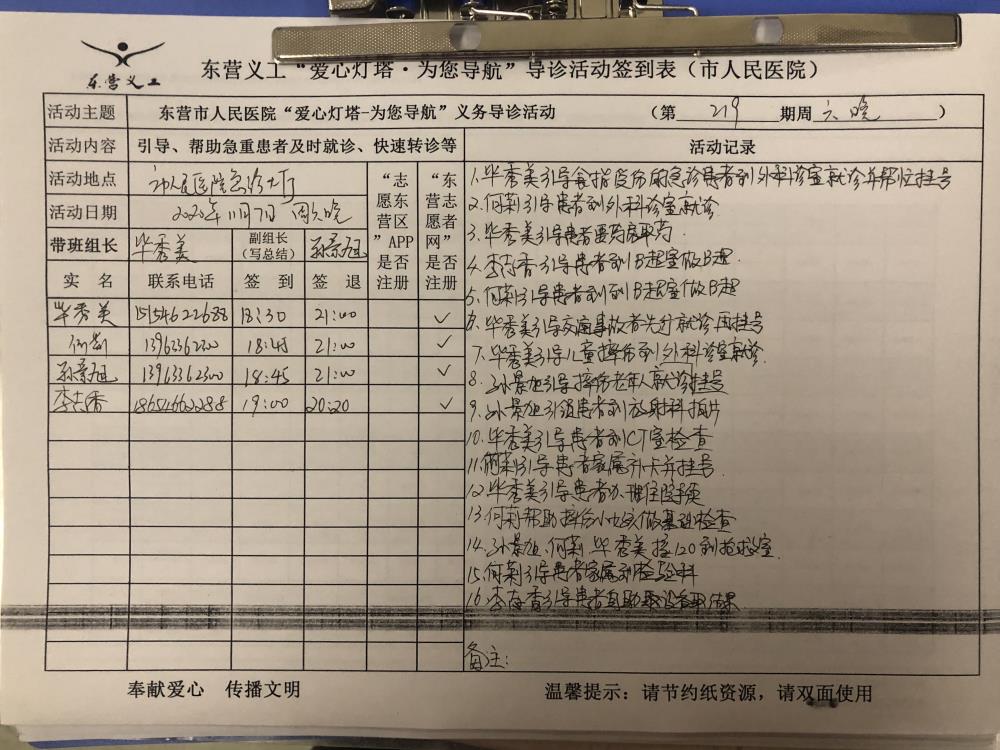 东营义工
东营义工“爱心灯塔·为您导航”导诊活动签到表（市人民医院）
活动主题 东营市人民医院“爱心灯塔-为您导航”义务导诊活动 （第 219 期周 六 晚 ）
活动内容 引导、帮助急重患者及时就诊、快速转诊等 活动记录
活动地点 市人民医院急诊大厅
活动日期 11月7日 周六晚
带班组长 毕秀美 副组长（写总结） 孙景旭
“志愿东营区”APP是否注册
“东营志愿者网”是否注册
实 名 联系电话 签 到 签 退
毕秀美 15154622688 18:30 21:00 ✓
何莉 18:45 21:00 ✓
孙景旭 13963362300 18:45 21:00 ✓
李春香 18654662288 19:00 20:20 ✓
1.毕秀美引导食指受伤的急诊患者到外科诊室就诊并帮忙挂号
2.何莉引导患者到外科诊室就诊
3.毕秀美引导患者西药房取药
4.李春香引导患者到B超室做B超
5.何莉引导患者到B超室做B超
6.毕秀美引导交通事故者先行就诊再挂号
7.毕秀美引导儿童摔伤到外科诊室就诊
8.孙景旭引导摔伤老年人就诊挂号
9.孙景旭引领患者到放射科拍片
10.毕秀美引导患者到CT室检查
11.何莉引导患者家属补卡并挂号
12.毕秀美引导患者办理住院手续
13.何莉帮助摔伤小女孩做基础检查
14.孙景旭、何莉、毕秀美接120到抢救室
15.何莉引导患者家属到检验科
16.李春香引导患者自助取设备取结果
备注：
奉献爱心 传播文明 温馨提示：请节约纸资源，请双面使用